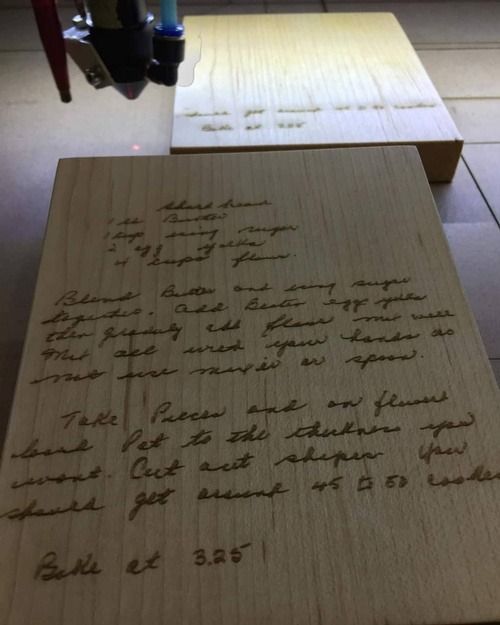 should get around 45 to 50 cookies
Bake at 325
Short bread
1 lb Butter
1 cup icing sugar
2 egg yolks
4 cups flour.
Blend Butter and icing sugar
together. add Beaten egg yolks
then gradualy add flour mix well
Mix all with your hands do
not use mixer or spoon.
Take Pieces and on floured
board Pat to the thickness you
want. Cut out shapes you
should get around 45 to 50 cookies
Bake at 3.25